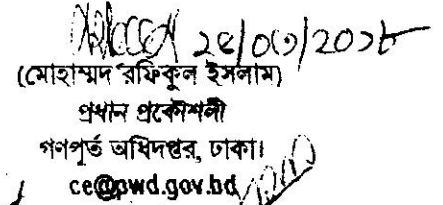 ২৫/০৩/২০১৮
(মোহাম্মদ রফিকুল ইসলাম)
প্রধান প্রকৌশলী
গণপূর্ত অধিদপ্তর, ঢাকা।
ce@pwd.gov.bd